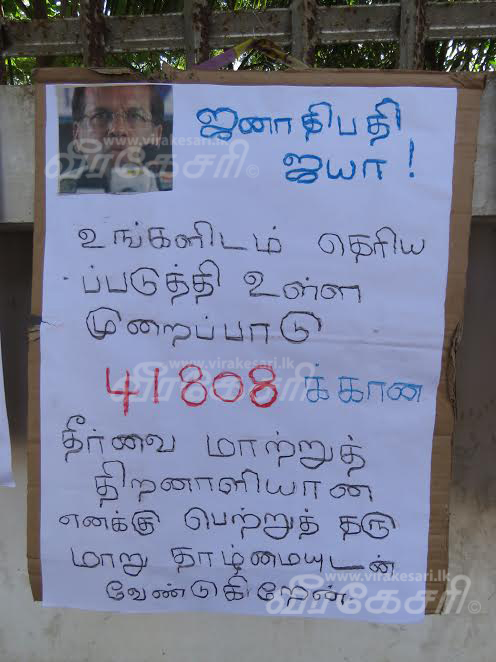 ஜனாதிபதி
ஐயா !
உங்களிடம் தெரிய
ப்படுத்தி உள்ள
முறைப்பாடு
41808 க்கான
தீர்வை மாற்றுத்
திறனாளியான
எனக்கு பெற்றுத் தரு
மாறு தாழ்மையுடன்
வேண்டுகிறேன்
www.virakesari.lk
வீரகேசரி©
www.virakesari.lk
வீரகேசரி©
www.virakesari.lk
வீரகேசரி©